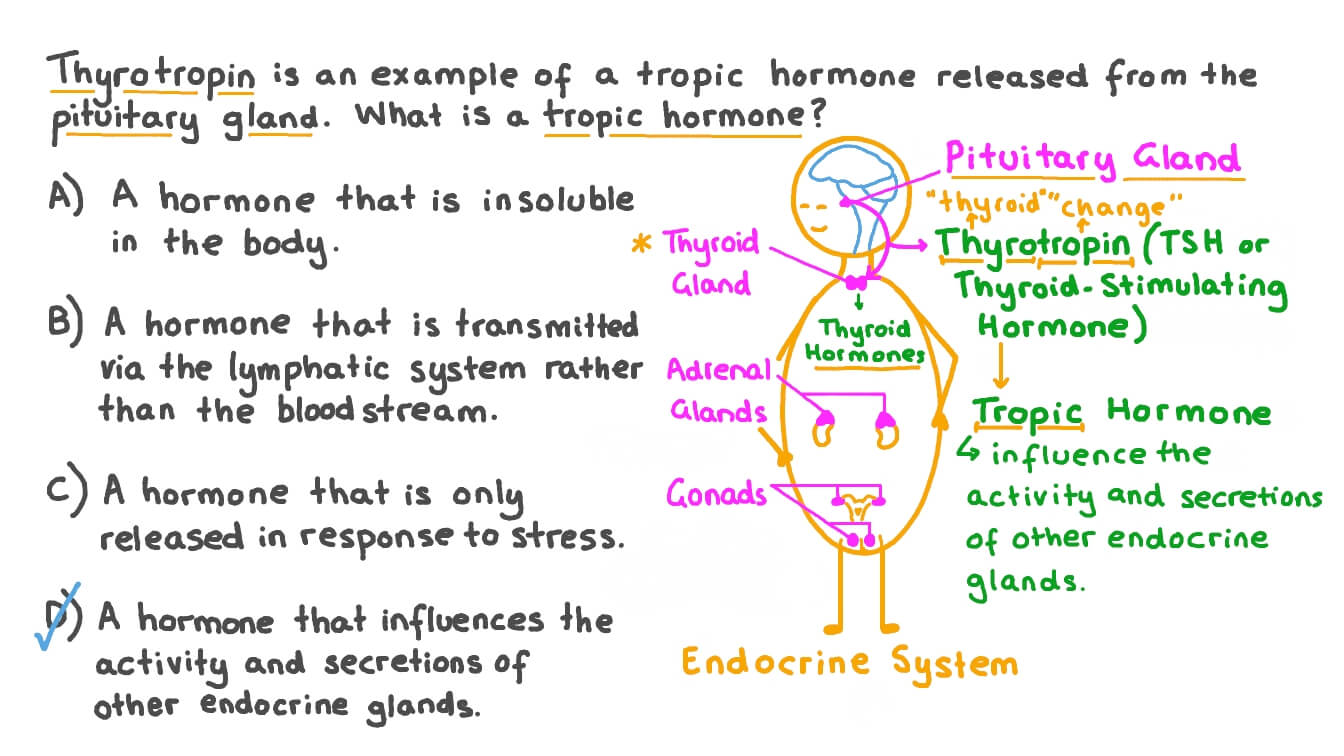 Thyrotropin is an example of a tropic hormone released from the
pituitary gland. What is a tropic hormone?
A) A hormone that is insoluble
in the body.
B) A hormone that is transmitted
via the lymphatic system rather
than the bloodstream.
C) A hormone that is only
released in response to stress.
D) A hormone that influences the
activity and secretions of
other endocrine glands.
Pituitary Gland
"thyroid" "change"
* Thyroid
Gland
Thyrotropin (TSH or
Thyroid-Stimulating
Hormone)
Thyroid
Hormones
Adrenal
Glands
Gonads
Tropic Hormone
↳ influence the
activity and secretions
of other endocrine
glands.
Endocrine System